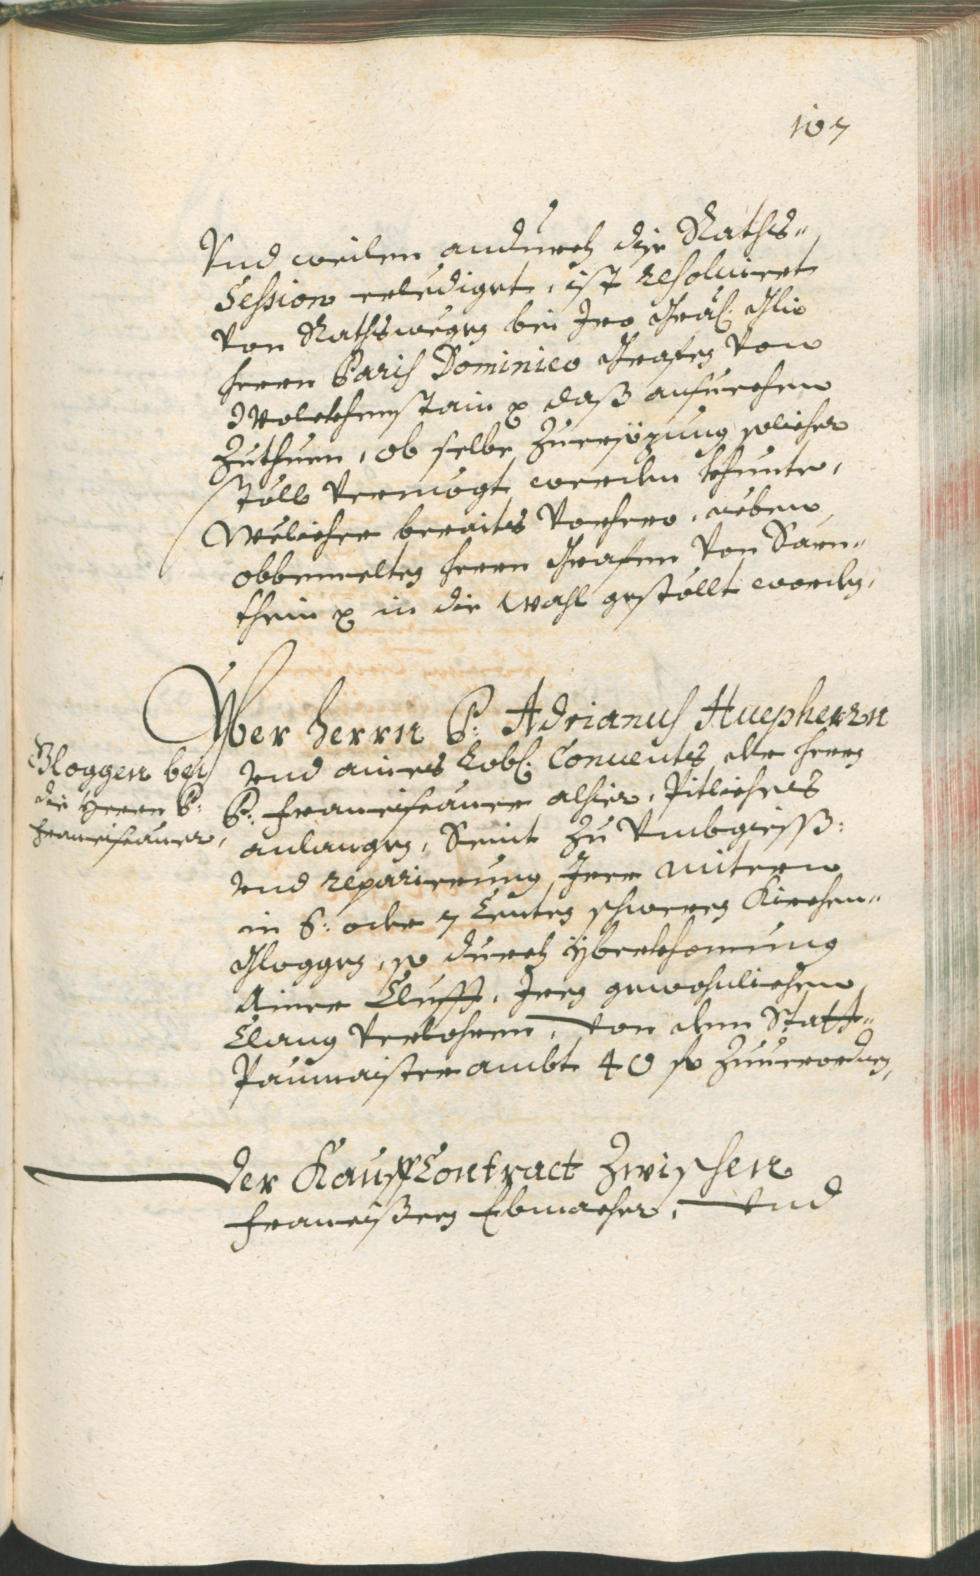 107
Vnd weilen andurch die Raths-
Session erlediget, ist resoluiert
von Rathswegen bei Iro Gräf: Gl:
herrn Paris Dominico Grafen von
Wolckhenstain p daß ansuechen
zuthuen, ob selbe zu ersözung solicher
stöll vermögt werden khunte,
Welicher beraits vorhero, neben
obbemelten herrn Grafen von Sarn-
thein p in die Wahl gestöllt worden,
Yber herrn P: Adrianus Huepherrn
vnd aines Lobl: Conuents der herrn
P. Franciscaner alhier, Pitliches
anlangen, Seint zu Vmbgiess:
vnd reparierung Irer mitern
in 6: oder 7 Centen schweren Kirchen-
Gloggen, so durch yberkhomung
Ainer Clufft, Iren gewohnlichen
Clang verlohren, von dem Statt-
Paumaisterambt 40 fl zuuerordnen,
Gloggen bey
die Herrn P:
Franciscaner,
Der Kauff Contract zwischen
Francißen Ebmacher, vnd